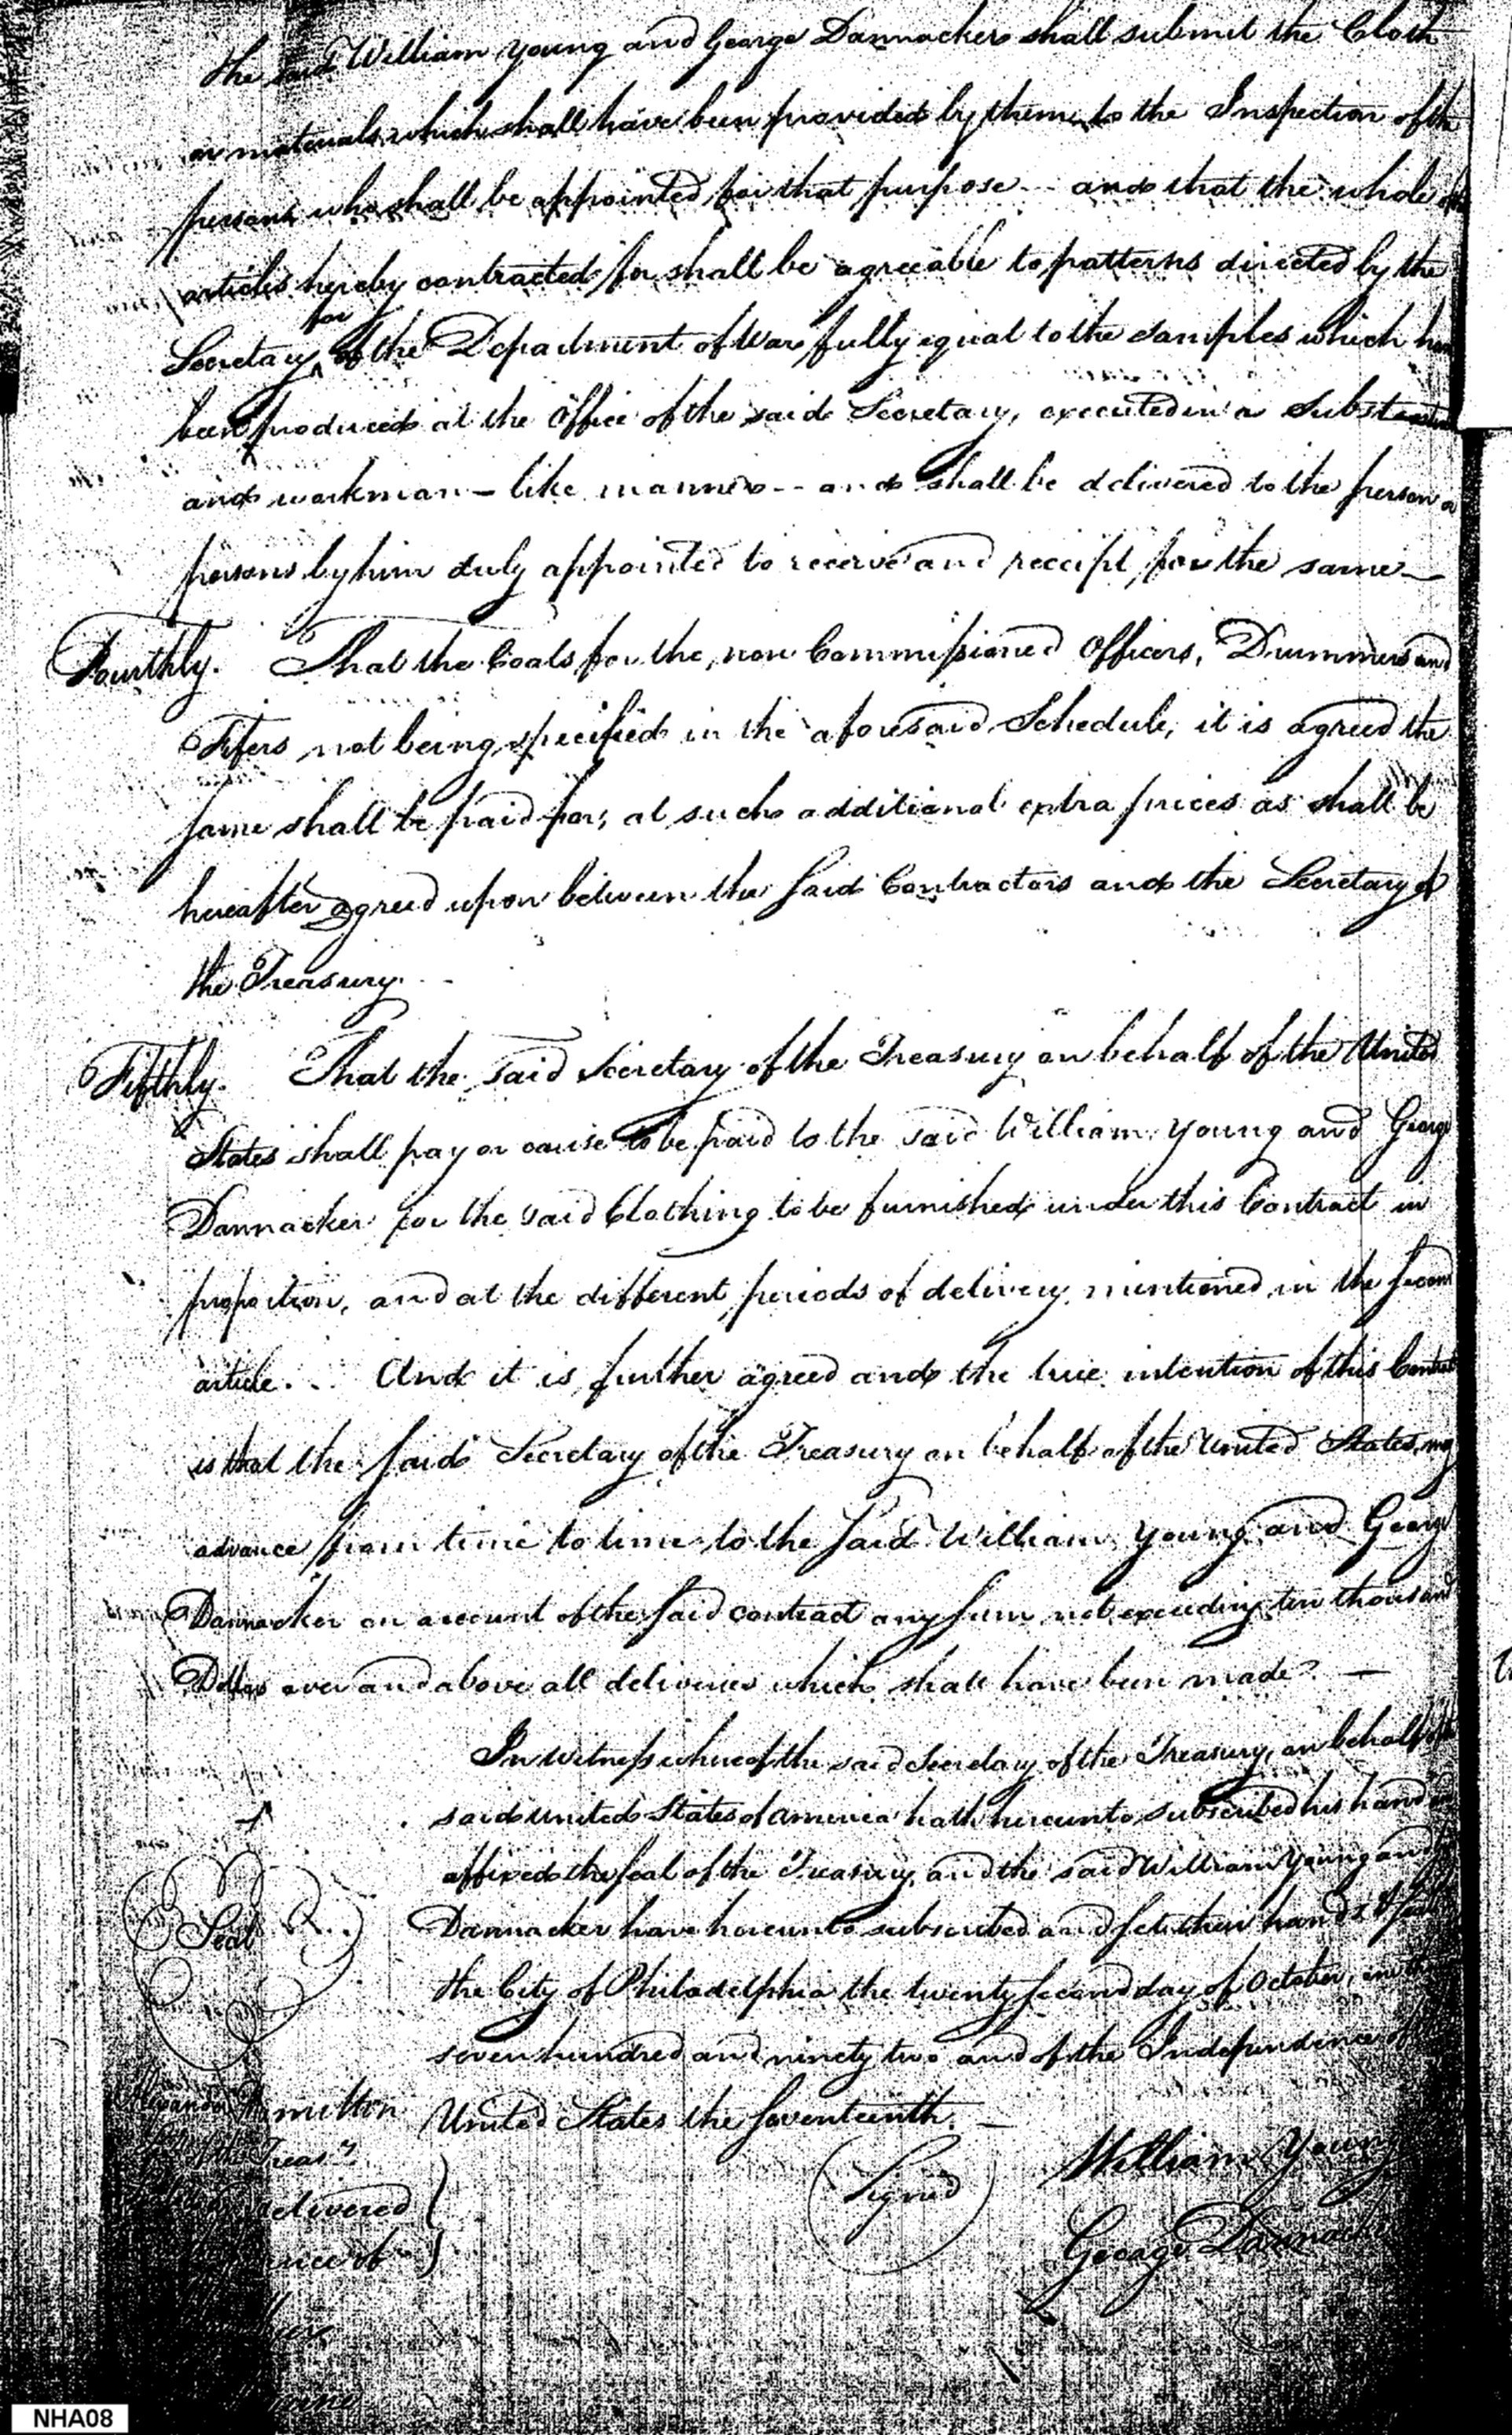 the said William Young and George Dannacker shall submit the Cloth
or materials which shall have been provided by them to the Inspection of the
persons who shall be appointed for that purpose -- and that the whole
articles hereby contracted for shall be agreeable to patterns directed by the
for
Secretary of the Department of War fully equal to the samples which have
been produced at the Office of the said Secretary, executed in a Substantial
and workman - like manner -- and shall be delivered to the person or
persons by him duly appointed to receive and receipt for the same —
Fourthly. That the Coats for the non Commissioned Officers, Drummers and
Fifers not being specified in the aforesaid Schedule, it is agreed the
same shall be paid for, at such additional extra prices as shall be
hereafter agreed upon between the said Contractors and the Secretary of
the Treasury.
Fifthly. That the said Secretary of the Treasury on behalf of the United
States shall pay or cause to be paid to the said William Young and George
Dannacker for the said Clothing to be furnished under this Contract in
proportion, and at the different periods of delivery mentioned in the second
article. And it is further agreed and the true intention of this Contract
is that the said Secretary of the Treasury on behalf of the United States may
advance from time to time to the said William Young and George
Dannacker on account of the said contract any sum not exceeding ten thousand
Dollars over and above all deliveries which shall have been made. —
In witness whereof the said Secretary of the Treasury, on behalf of the
said United States of America hath hereunto subscribed his hand and
affixed the seal of the Treasury, and the said William Young and
Dannacker have hereunto subscribed and set their hands & seals
the City of Philadelphia the twenty second day of October, in the
seven hundred and ninety two and of the Independence of the
United States the seventeenth. —
Seal
Alexander Hamilton
Treasy
delivered
Signed
William Young
George Dannacker
NHA08